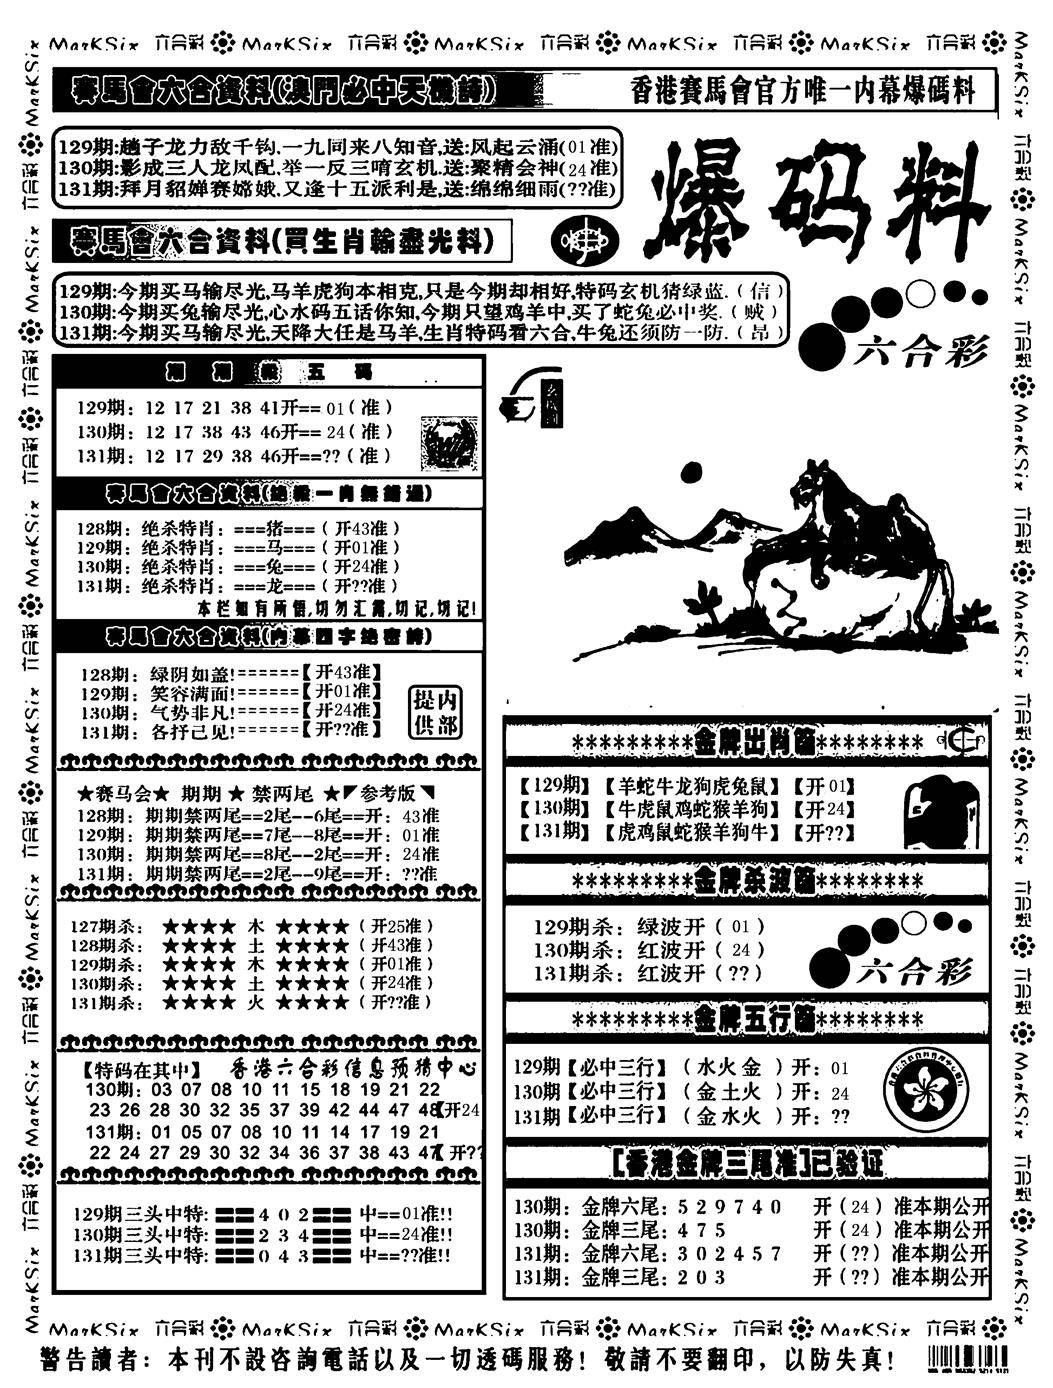 MarKSix 六合彩 MarKSix 六合彩 MarKSix 六合彩 MarKSix 六合彩 MarKSix 六合彩
賽馬會六合資料(澳門必中天機詩)
香港賽馬會官方唯一内幕爆碼料
129期:趟子龙力敌千钩.一九同来八知音,送:风起云涌(01准)
130期:影成三人龙凤配.举一反三唷玄机.送:聚精会神(24准)
131期:拜月貂婵赛嫦娥.又逢十五派利是,送:绵绵细雨(??准)
爆码料
賽馬會六合資料(買生肖輸盡光料)
129期:今期买马输尽光,马羊虎狗本相克,只是今期却相好,特码玄机猜绿蓝.(信)
130期:今期买兔输尽光,心水码五话你知,今期只望鸡羊中,买了蛇兔必中奖.(贼)
131期:今期买马输尽光,天降大任是马羊,生肖特码看六合,牛兔还须防一防.(昂)
六合彩
期期殺五碼
129期: 12 17 21 38 41开==01(准)
130期: 12 17 38 43 46开==24(准)
131期: 12 17 29 38 46开==??(准)
賽馬會六合資料(绝殺一肖無錯過)
128期: 绝杀特肖: ===猪===(开43准)
129期: 绝杀特肖: ===马===(开01准)
130期: 绝杀特肖: ===兔===(开24准)
131期: 绝杀特肖: ===龙===(开??准)
本栏如有所悟,切勿汇露,切记,切记!
賽馬會六合資料(内幕四字绝密詩)
128期: 绿阴如盖!======【开43准】
129期: 笑容满面!======【开01准】
130期: 气势非凡!======【开24准】
131期: 各抒己见!======【开??准】
提内
供部
★赛马会★ 期期 ★ 禁两尾 ★◤参考版◥
128期: 期期禁两尾==2尾--6尾==开: 43准
129期: 期期禁两尾==7尾--8尾==开: 01准
130期: 期期禁两尾==8尾--2尾==开: 24准
131期: 期期禁两尾==2尾--9尾==开: ??准
127期杀: ★★★★ 木 ★★★★(开25准)
128期杀: ★★★★ 土 ★★★★(开43准)
129期杀: ★★★★ 木 ★★★★(开01准)
130期杀: ★★★★ 土 ★★★★(开24准)
131期杀: ★★★★ 火 ★★★★(开??准)
【特码在其中】 香港六合彩信息预猜中心
130期: 03 07 08 10 11 15 18 19 21 22
23 26 28 30 32 35 37 39 42 44 47 48【开24
131期: 01 05 07 08 10 11 14 17 19 21
22 24 27 29 30 32 34 36 37 38 43 47【开??
129期三头中特: 〓〓4 0 2〓〓 中==01准!!
130期三头中特: 〓〓2 3 4〓〓 中==24准!!
131期三头中特: 〓〓0 4 3〓〓 中==??准!!
*********金牌出肖篇********
【129期】【羊蛇牛龙狗虎兔鼠】【开01】
【130期】【牛虎鼠鸡蛇猴羊狗】【开24】
【131期】【虎鸡鼠蛇猴羊狗牛】【开??】
*********金牌杀波篇********
129期杀: 绿波开(01)
130期杀: 红波开(24)
131期杀: 红波开(??)
六合彩
*********金牌五行篇********
129期【必中三行】(水火金)开: 01
130期【必中三行】(金土火)开: 24
131期【必中三行】(金水火)开: ??
[香港金牌三尾准]已验证
130期: 金牌六尾: 5 2 9 7 4 0 开(24)准本期公开
130期: 金牌三尾: 4 7 5 开(24)准本期公开
131期: 金牌六尾: 3 0 2 4 5 7 开(??)准本期公开
131期: 金牌三尾: 2 0 3 开(??)准本期公开
MarKSix 六合彩 MarKSix 六合彩 MarKSix 六合彩 MarKSix 六合彩 MarKSix 六合彩
警告讀者: 本刊不設咨詢電話以及一切透碼服務! 敬請不要翻印, 以防失真!